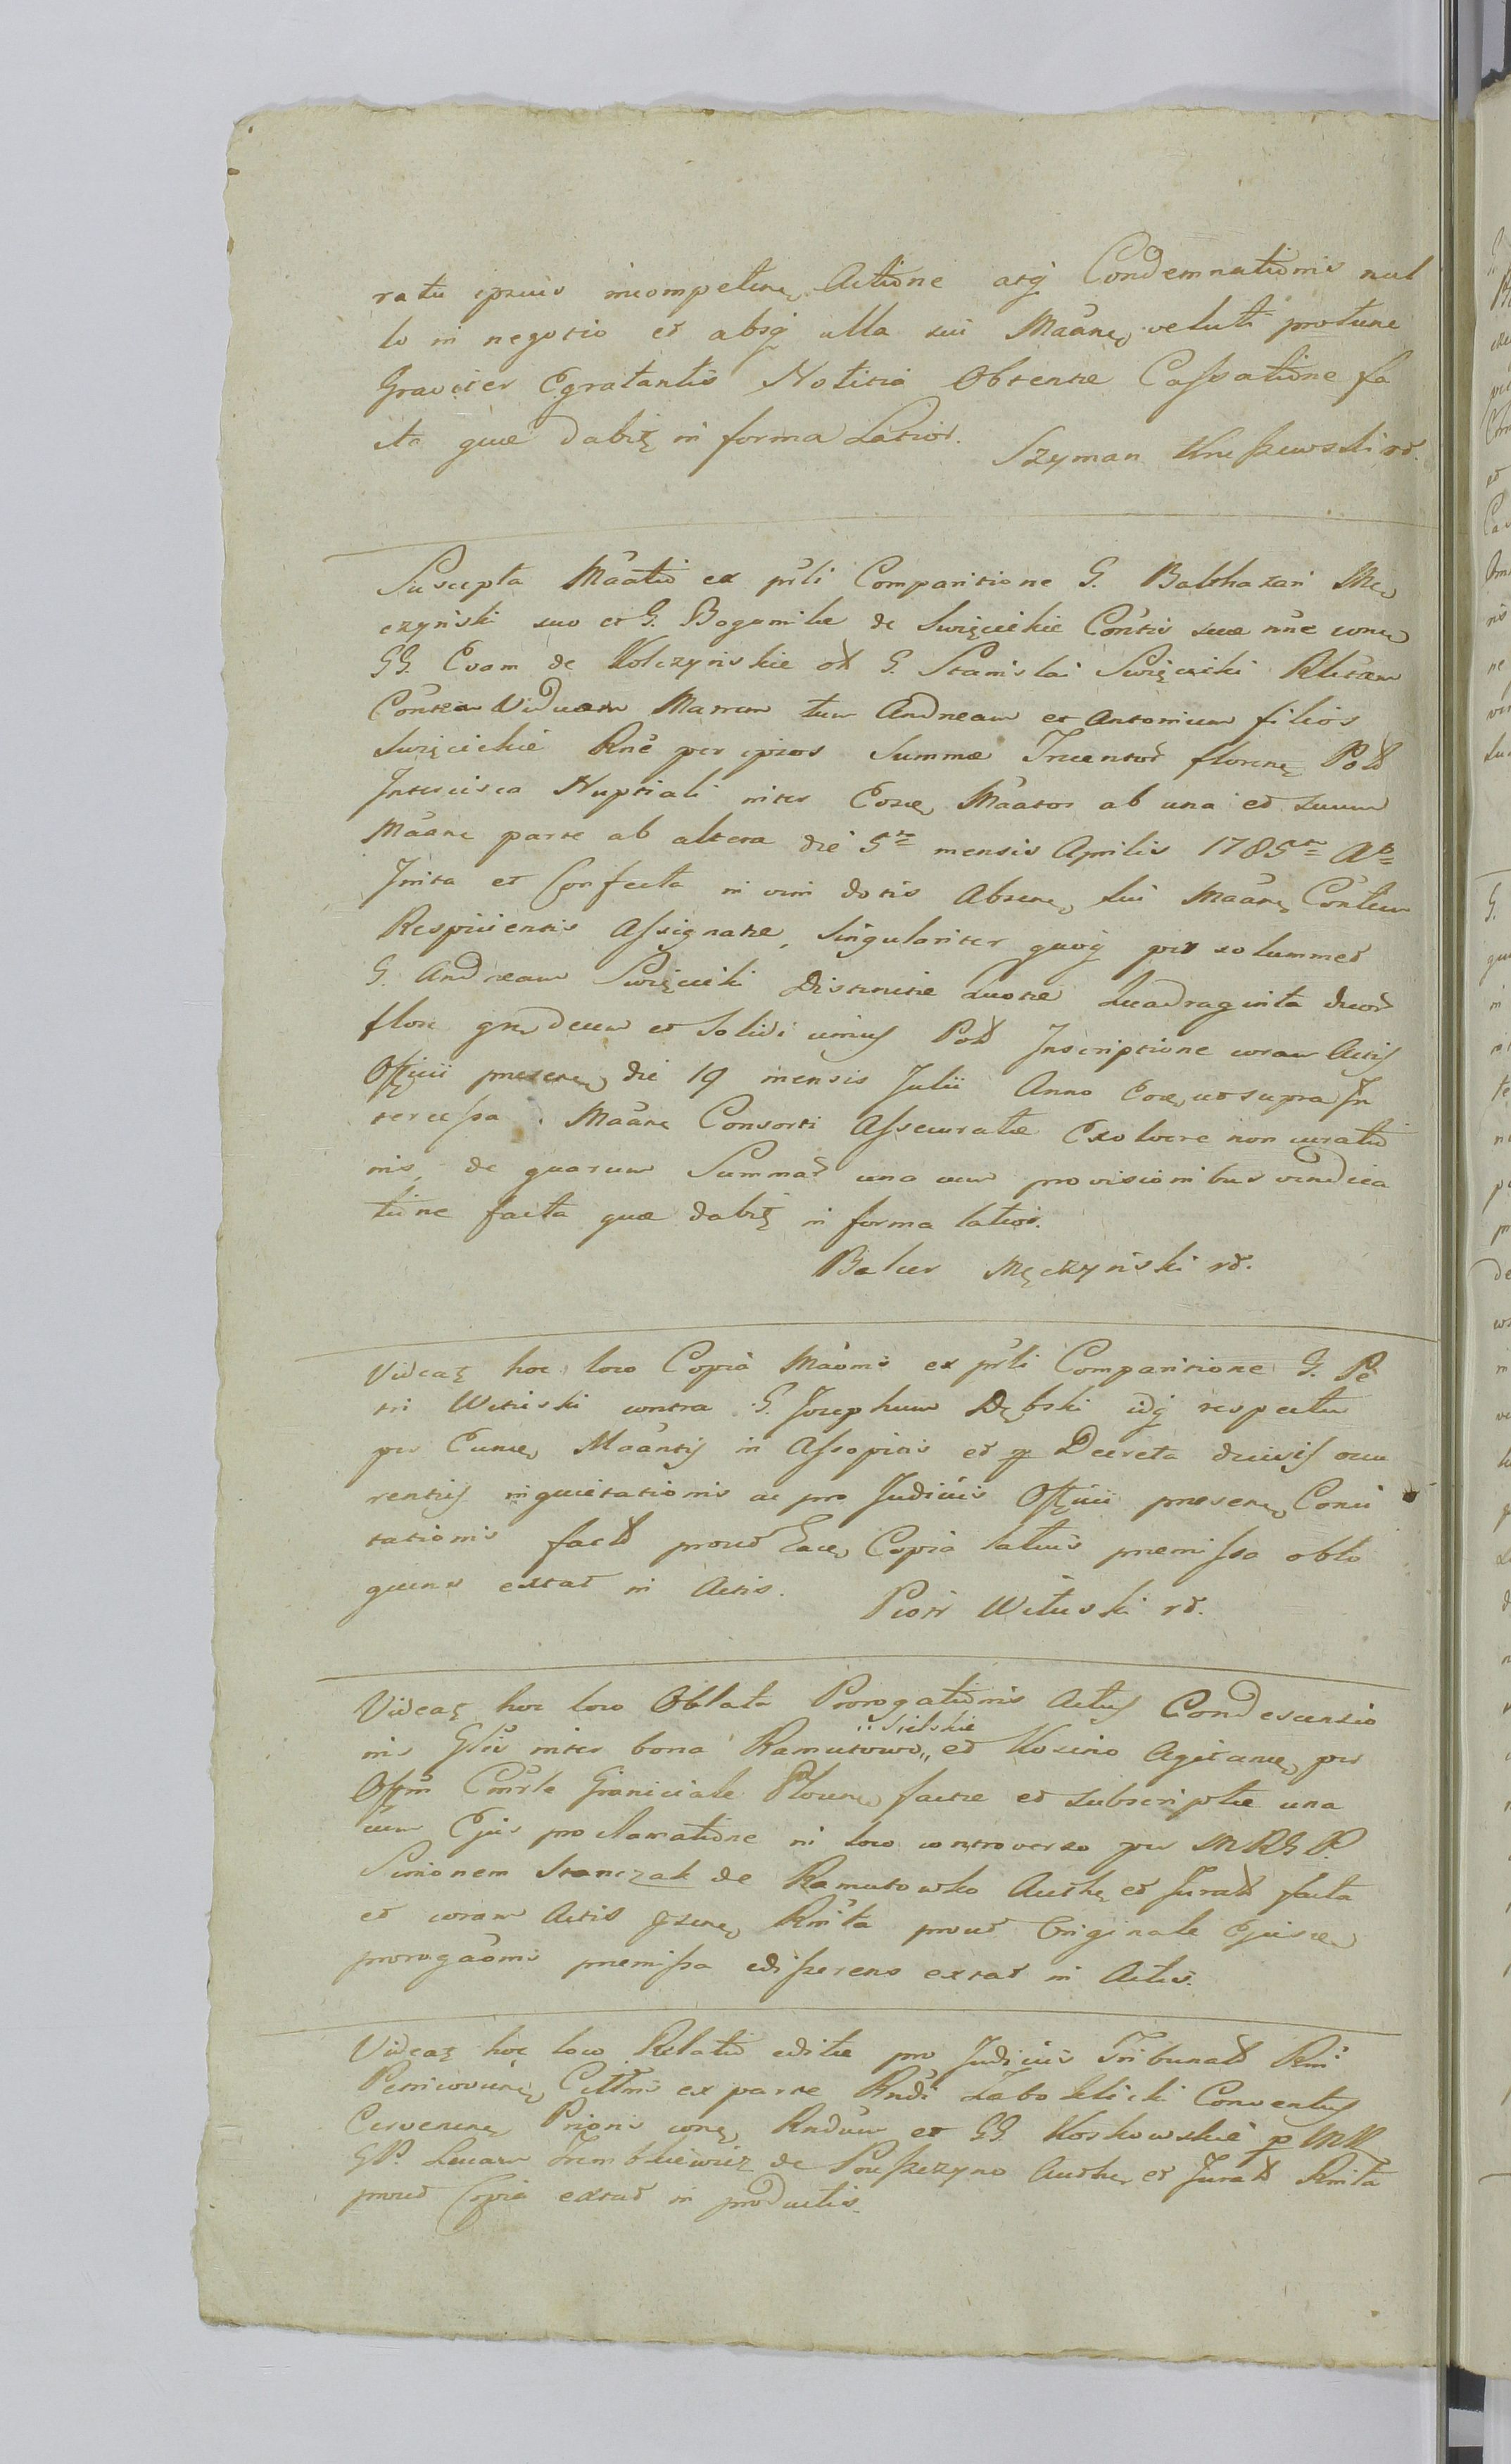 ratu ipsius incompeten Actione atq Condemnationis nul
lo in negotio et absq ulla sui Maãne veluti protunc
Graviter Egrotantis Notitia Obtentae Cassatione fa
cta quae dabit in forma Latior. Szyman Kruszewski rd.
Suscepta Maãtio ex pŕli Comparitione G. Balthazari Mę
czynski suo et G. Bogumilae de Swięcickie Coñtis suae nñe cone
GG. Evam de Kolczynskie olt G. Stanislai Swięcicki Rlitam
Contem Viduam Matrem tum Andream et Antonium filios
Swięcickie Rñe per ipsos Summae Trecentor floren Polt
Intercisa Nuptiali inter Eosde Maãtos ab una et suum
Maãne parte ab altera die 5ta mensis Aprilis 1785to Ao
Inita et Confecta in vim dotis Absen sui Maãne Contem
Respicientis Assignatae, Singulariter quoq per solummet
G. Andream Swięcicki Distincte Quotae Quadraginta duor
flore gr decem et Solidi unius Polt Inscriptione coram Actis
Offcii presen die 19 mensis Julii Anno Eode, ut supra In
tercessa. Maãne Consorti Assecuratae Exolvere non curatio
nis, de quarum Summar una cum provisionibus vindica
tione facta quae dabit in forma latior.
Balcer Męczynski rd.
Videat hoc loco Copia Maõnis ex pŕli Comparitione G. Pe
tri Wituski contra G. Josephum Dębski idq respectu
per Eunde Maãntis in Assopitis et p Decreta decisis occu
rentiis inquietationis ac pro Judiciis Offcii presen Conci
tationis fact prout Eade Copia latius premissa oblo
quens extat in Actis. Piotr Wituski rd.
Videat hoc loco Oblata Prorogationis Actus Condescensio
nis Glis inter bona Ramutowo " et Kosino Agitan per
:: Sielskie
Offm Cmrle Graniciale Plocen factae et subscriptae una
cum Ejus proclamatione in loco controverso per MRGP.
Simonem Stanczak de Ramutowko Authe et Jurat facta
et coram Actis psene Rnita prout Originale Ejusde
prorogaõnis premissa edisserens extat in Actis.
Videat hoc loco Relatio editae pro Judiciis Tribunal Rni
Petricovien Cittnis ex parte Rndi Zaboklicki Conventus
Cervenen Prioris cone Rndum et GG. Koskowskie p MR
GP. Lucam Trembkiewicz de Pruszczyno Authe et Jurat Rnita
prout Copia extat in productis.